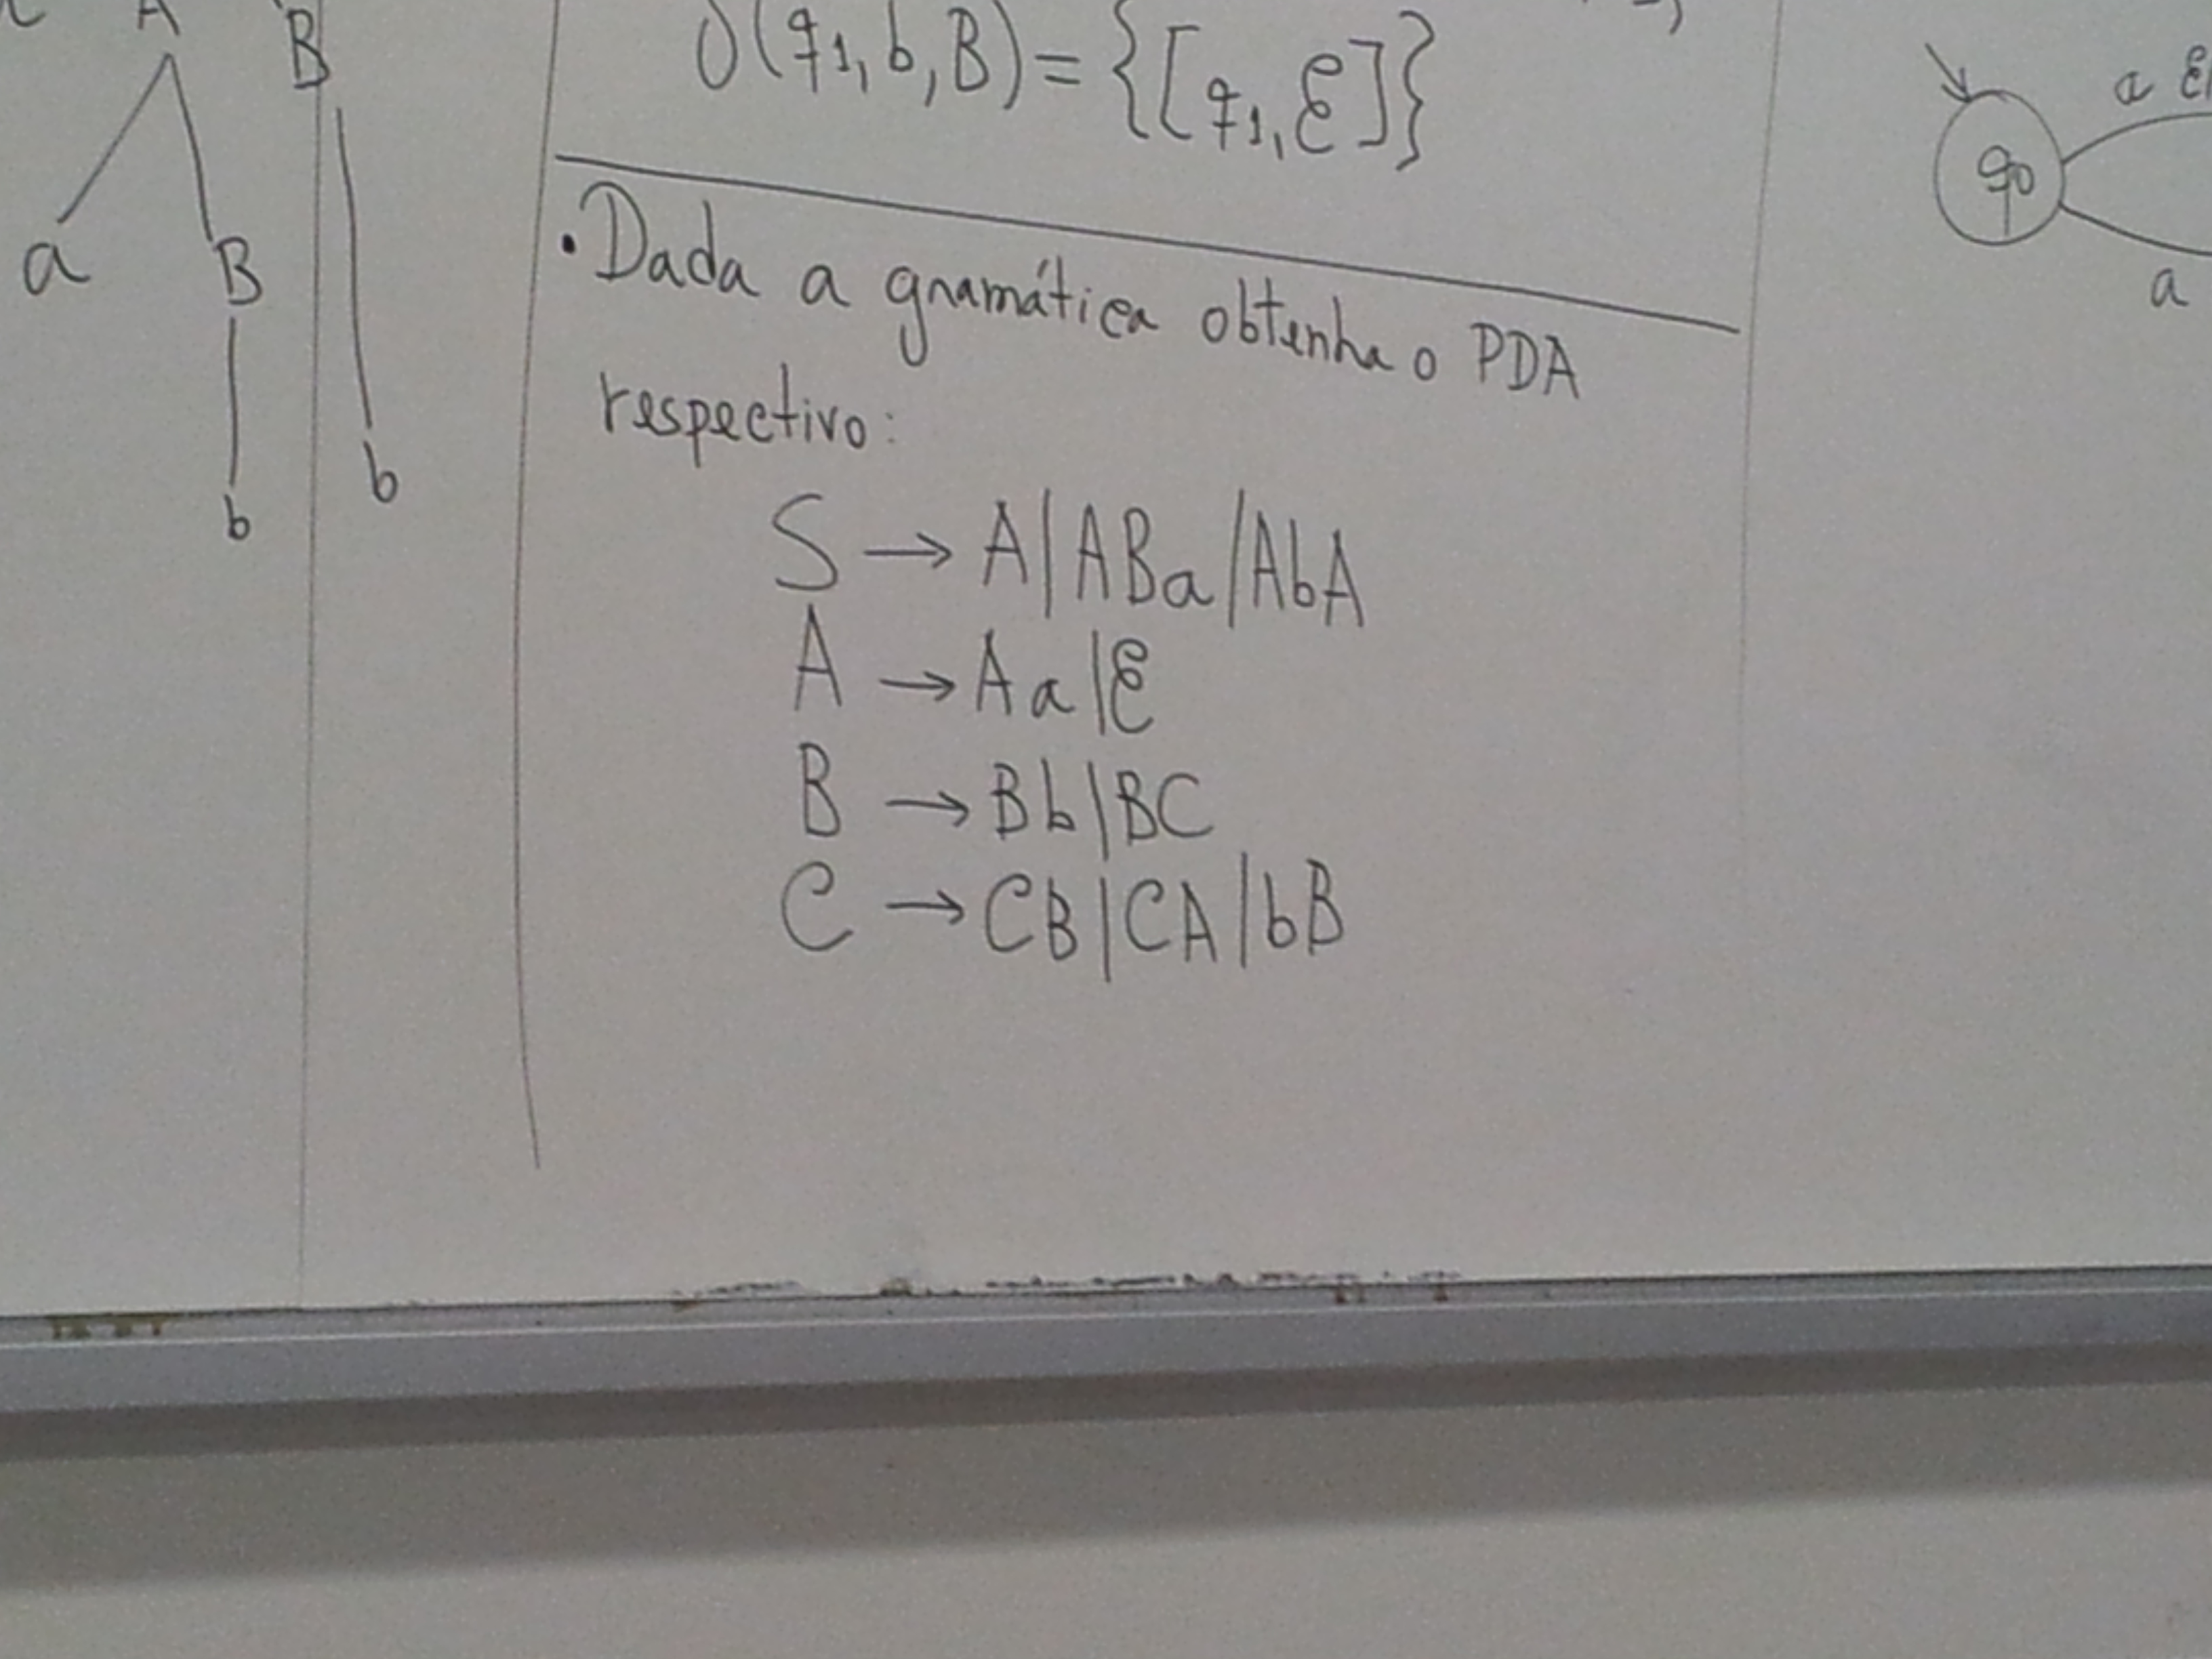 A B
a B
b b
δ(q1, b, B) = {[q1, ε]}
• Dada a gramática obtenha o PDA
respectivo:
S → A | ABa | AbA
A → Aa | ε
B → Bb | BC
C → CB | CA | bB
q0
a ε
a